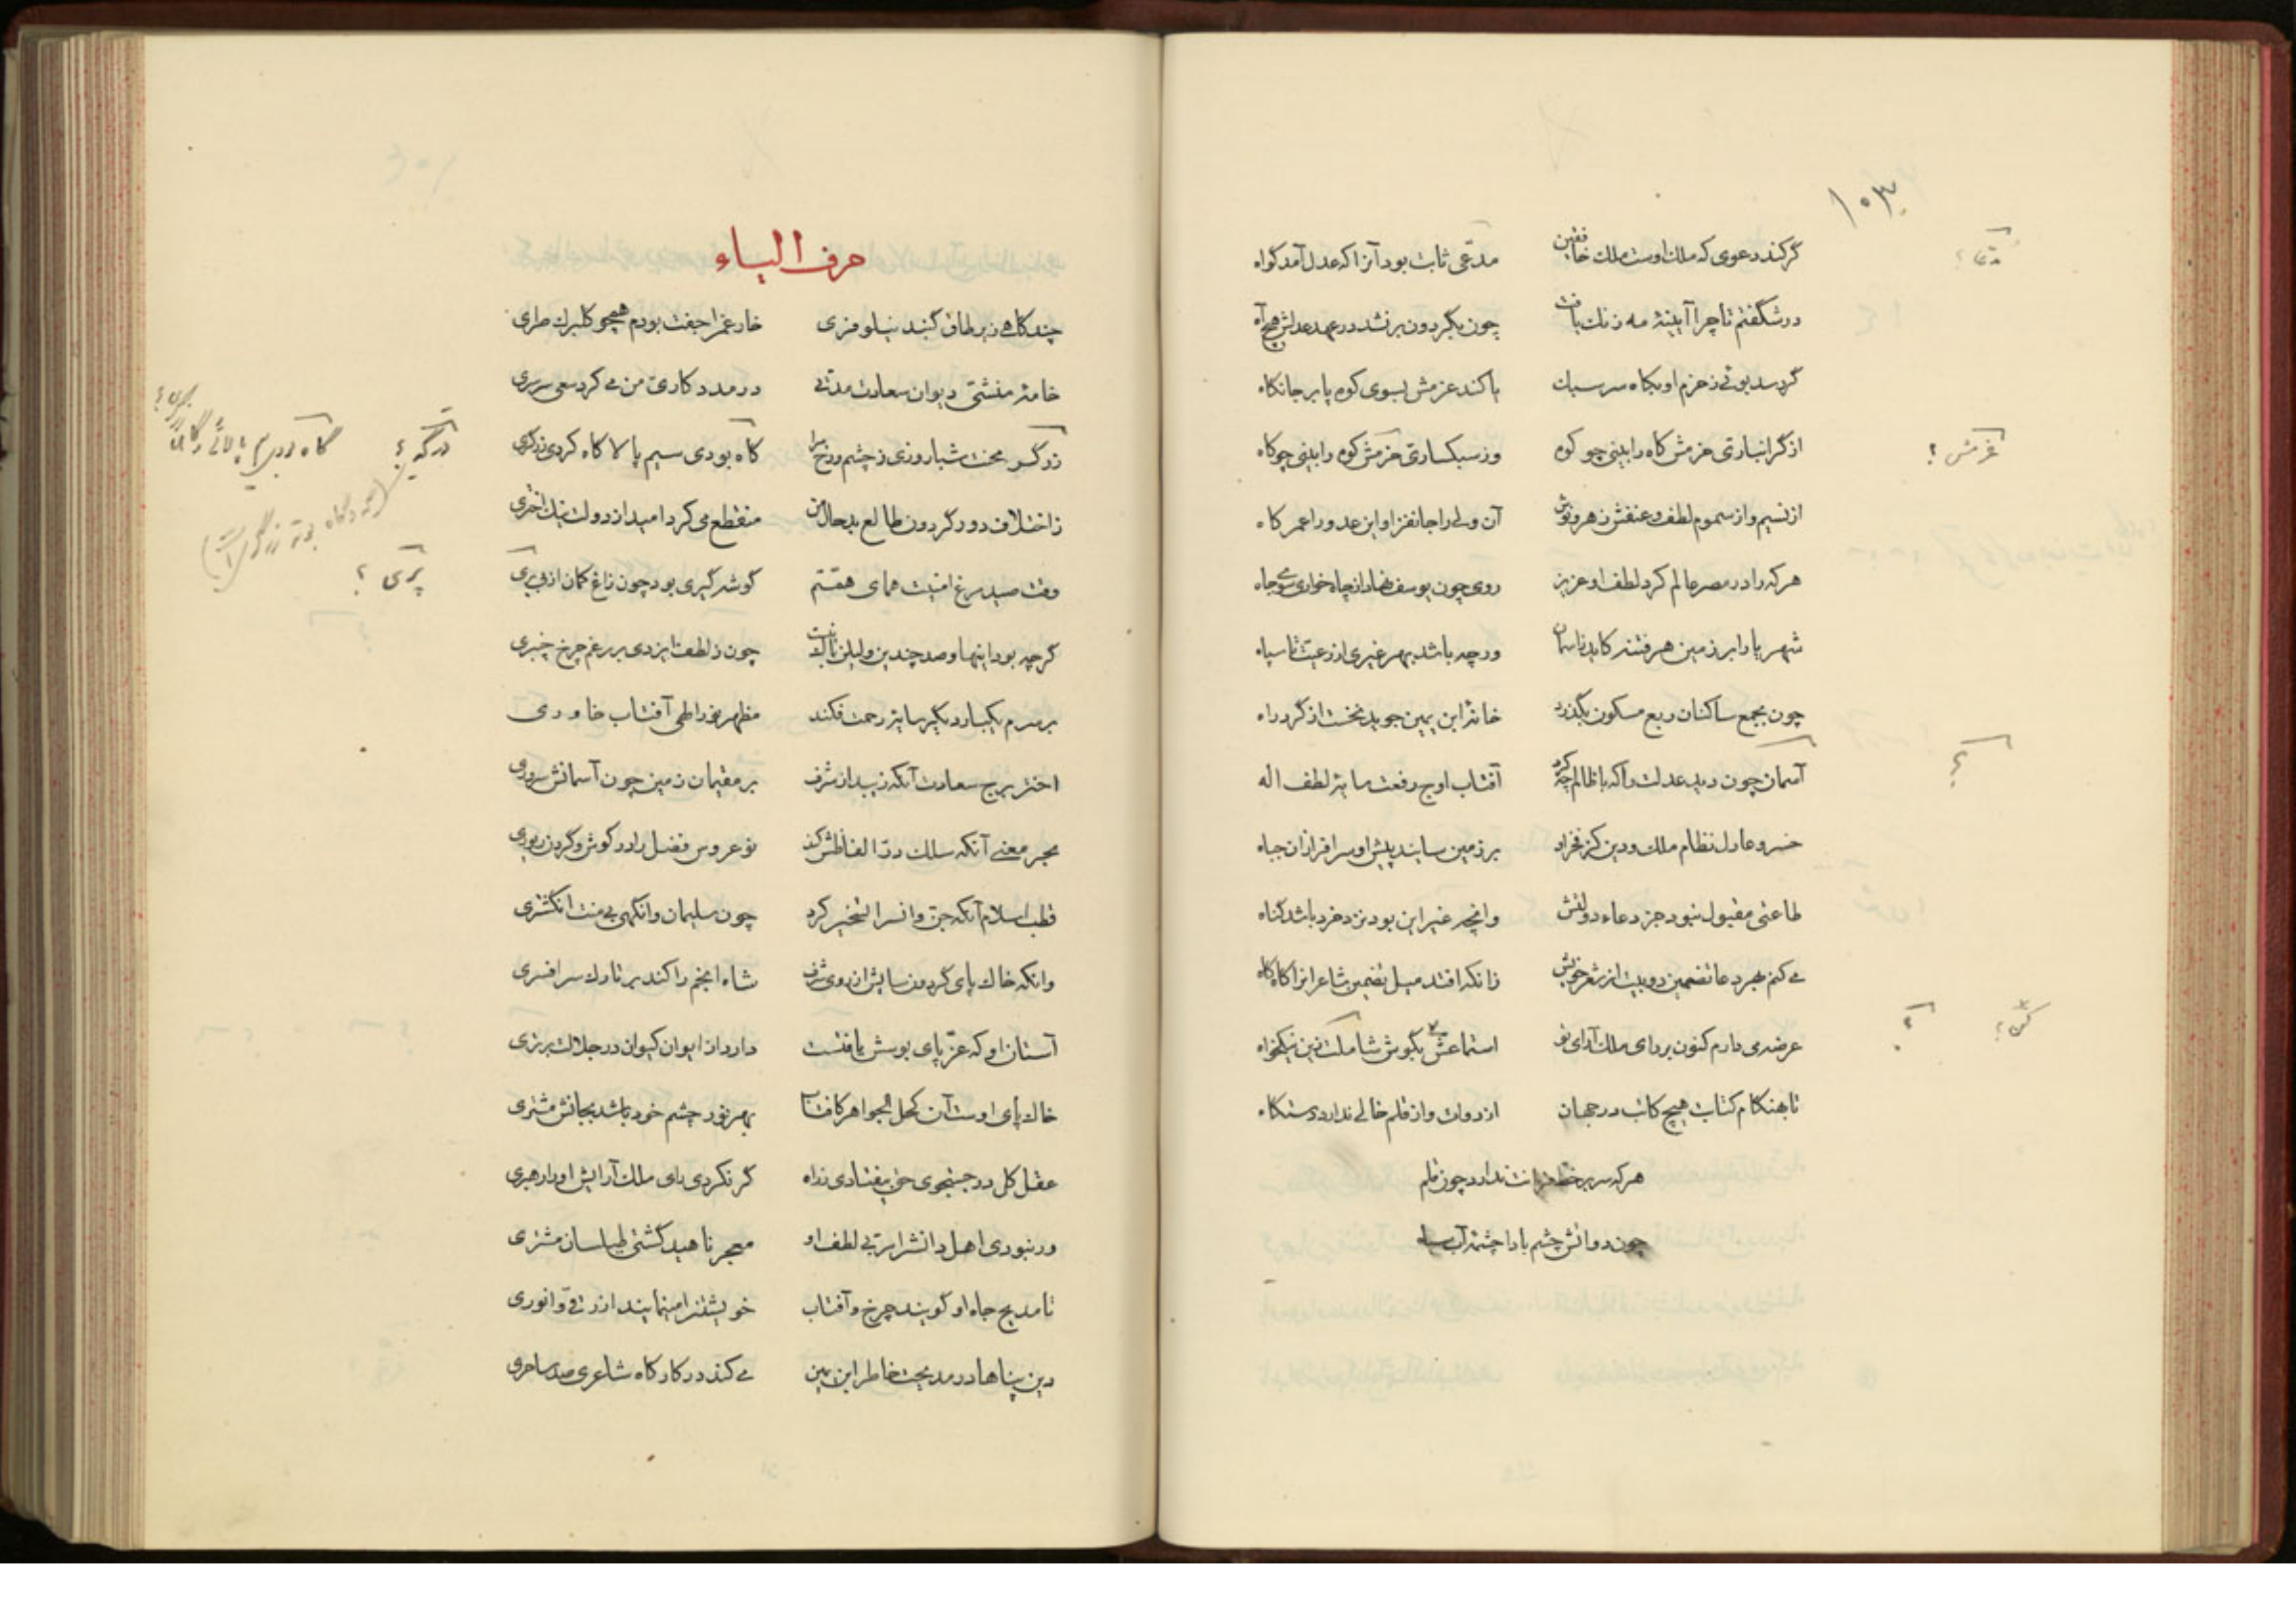 ۱۰۳
گر کند دعوی که ملک اوست ملک خافقین مدّعی ثابت بود آنرا که عدل آمد گواه
مدّعا؟
در شگفتم تا چرا آیینهٔ مه زنك یافت چون بگردون بر نشد در عهد عدلش هیچ آه
گر رسد بوئی ز حزم او بکاه سر سبك با کند عزمش بسوی کوه پا بر جا نکاه
از گرانباری حزمش کاه را بینی چو کوه وز سبکساری عزمش کوه را بینی چو کاه
عزمش؟
از نسیم و از سموم لطف و عنفش زهر و نوش آن ولی را جانفزا و این عدو را عمر کاه
هر که را در مصر عالم کرد لطف او عزیز روی چون یوسف نهاد از چاه خواری سوی جاه
شهریارا بر زمین هر فتنه کاید ز آسمان ور چه باشد بهر غیری از رعیت تا سپاه
چون بجمع ساکنان ربع مسکون بگذرد خانهٔ ابن یمین جوید نخست از گرد راه
آسمان چون دید عدلت را که با ظالم چه کرد آفتاب اوج رفعت سایهٔ لطف اله
؟
خسرو عادل نظام ملك و دین کز فخر او بر زمین سایند پیش او سرافرازان جباه
طاعتی مقبول نبود جز دعاء دولتش وانچه غیر این بود نزد خرد باشد گناه
می کنم بهر دعا تضمین دو بیت از شعر خویش زانکه افتد میل تضمین شاعرانرا گاه گاه
عرضه می دارم کنون بر رای ملك آرای تو استماعش بگوش شا ملکت زین نیکخواه
کش؟ ؟
تا بهنگام کتابت هیچ کاتب در جهان از دوات و از قلم خالی ندارد دستگاه
هر که سر بر خط فرمانت ندارد چون قلم
چون دواتش چشم بادا چشمهٔ آب سیاه
حرف الیاء
چند گاهی زیر طاق گنبد نیلوفری خار غم را جفت بودم همچو گلبرگ طری
خامهٔ منشئ دیوان سعادت مدتی در مددکاری من می کرد سعی سرسری
زرگر بخت شبا روزی ز چشم و رخ مرا گاه بودی سیم پالا گاه کردی زرگری
درگه؟ گاه بودی سیم پالائی و گاه زرگری؟
ز اختلاف دور گردون طالع بد حال من منقطع می کرد امید از دولت نیك اختری
وقت صید مرغ امنیت همای همّتم گوشه گیری بود چون زاغ کمان از بی پری
پری؟
گرچه بود اینها و صد چندین ولیکن عاقبت چون ز لطف ایزدی بر رغم چرخ چنبری
بر سرم یکبار دیگر سایهٔ رحمت فکند مظهر نور الهی آفتاب خاوری
اختر برج سعادت آنکه زیبد از شرف بر مقیمان زمین چون آسمانش سروری
بحر معنی آنکه سلك درّ الفاظش کند نو عروس فضل را در گوش و گردن زیوری
قطب اسلام آنکه جنّ و انس را تسخیر کرد چون سلیمان وانگهی بی منت انگشتری
وانکه خاك پای گردون سایش از روی شرف شاه انجم را کند بر تارك سر افسری
آستان او که عزّ پای بوسش یافتست دارد از ایوان کیوان در جلالت برتری
خاك پای اوست آن کحل الجواهر کافتاب بهر نور چشم خود باشد بجانش مشتری
عقل کل در جستجوی حق بیفتادی ز راه گر نکردی رای ملك آرایش او را رهبری
ور نبودی اهل دانش را مربی لطف او معجر ناهید گشتی طیلسان مشتری
تا مدیح جاه او گویند چرخ و آفتاب خویشتن را مینمایند ازرقی و انوری
دین پناها در مدیحت خاطر ابن یمین می کند در کارگاه شاعری صد ساحری